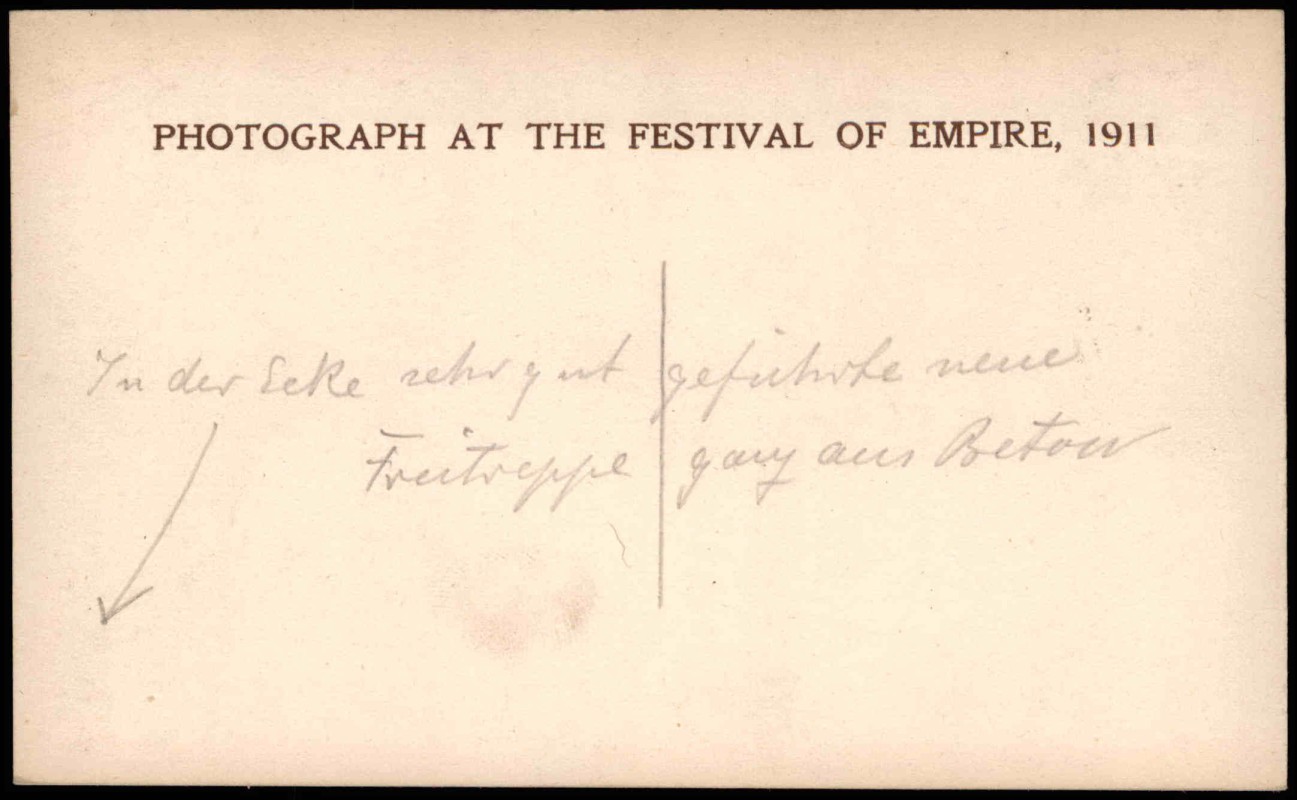 PHOTOGRAPH AT THE FESTIVAL OF EMPIRE, 1911
In der Ecke sehr gut geführte neue
Freitreppe ganz aus Beton